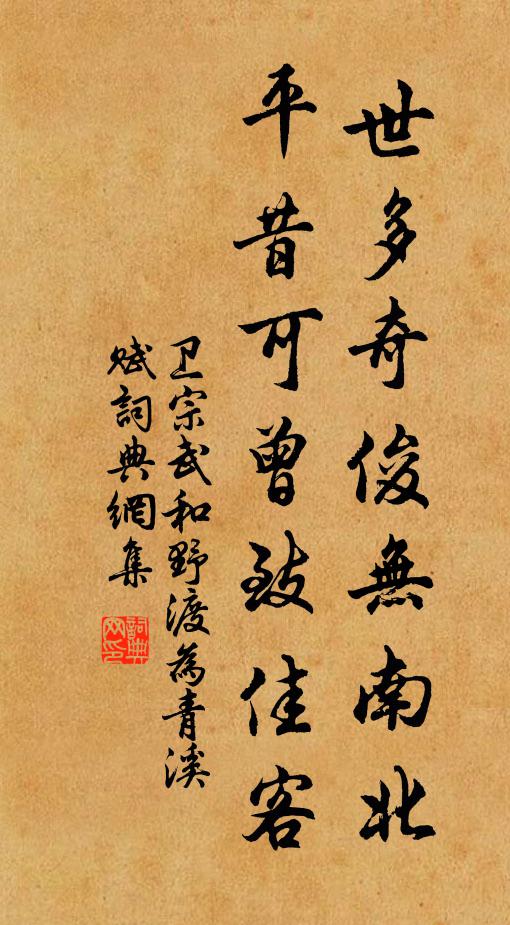 世多奇俊無南北
平昔可曾致佳客
卫宗武和野渡為青溪
賦詞典網集
詞典
網印